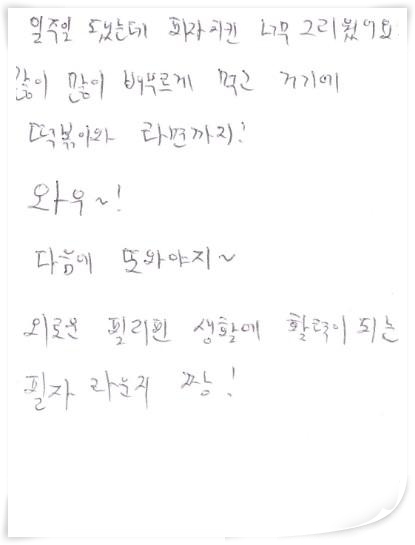 일주일 됐는데 피자치킨 너무 그리웠어요
많이 많이 배부르게 먹고 거기에
떡볶이와 라면까지!
와우~!
다음에 또와야지~
외로운 필리핀 생활에 활력이 되는
필자 라운지 짱!